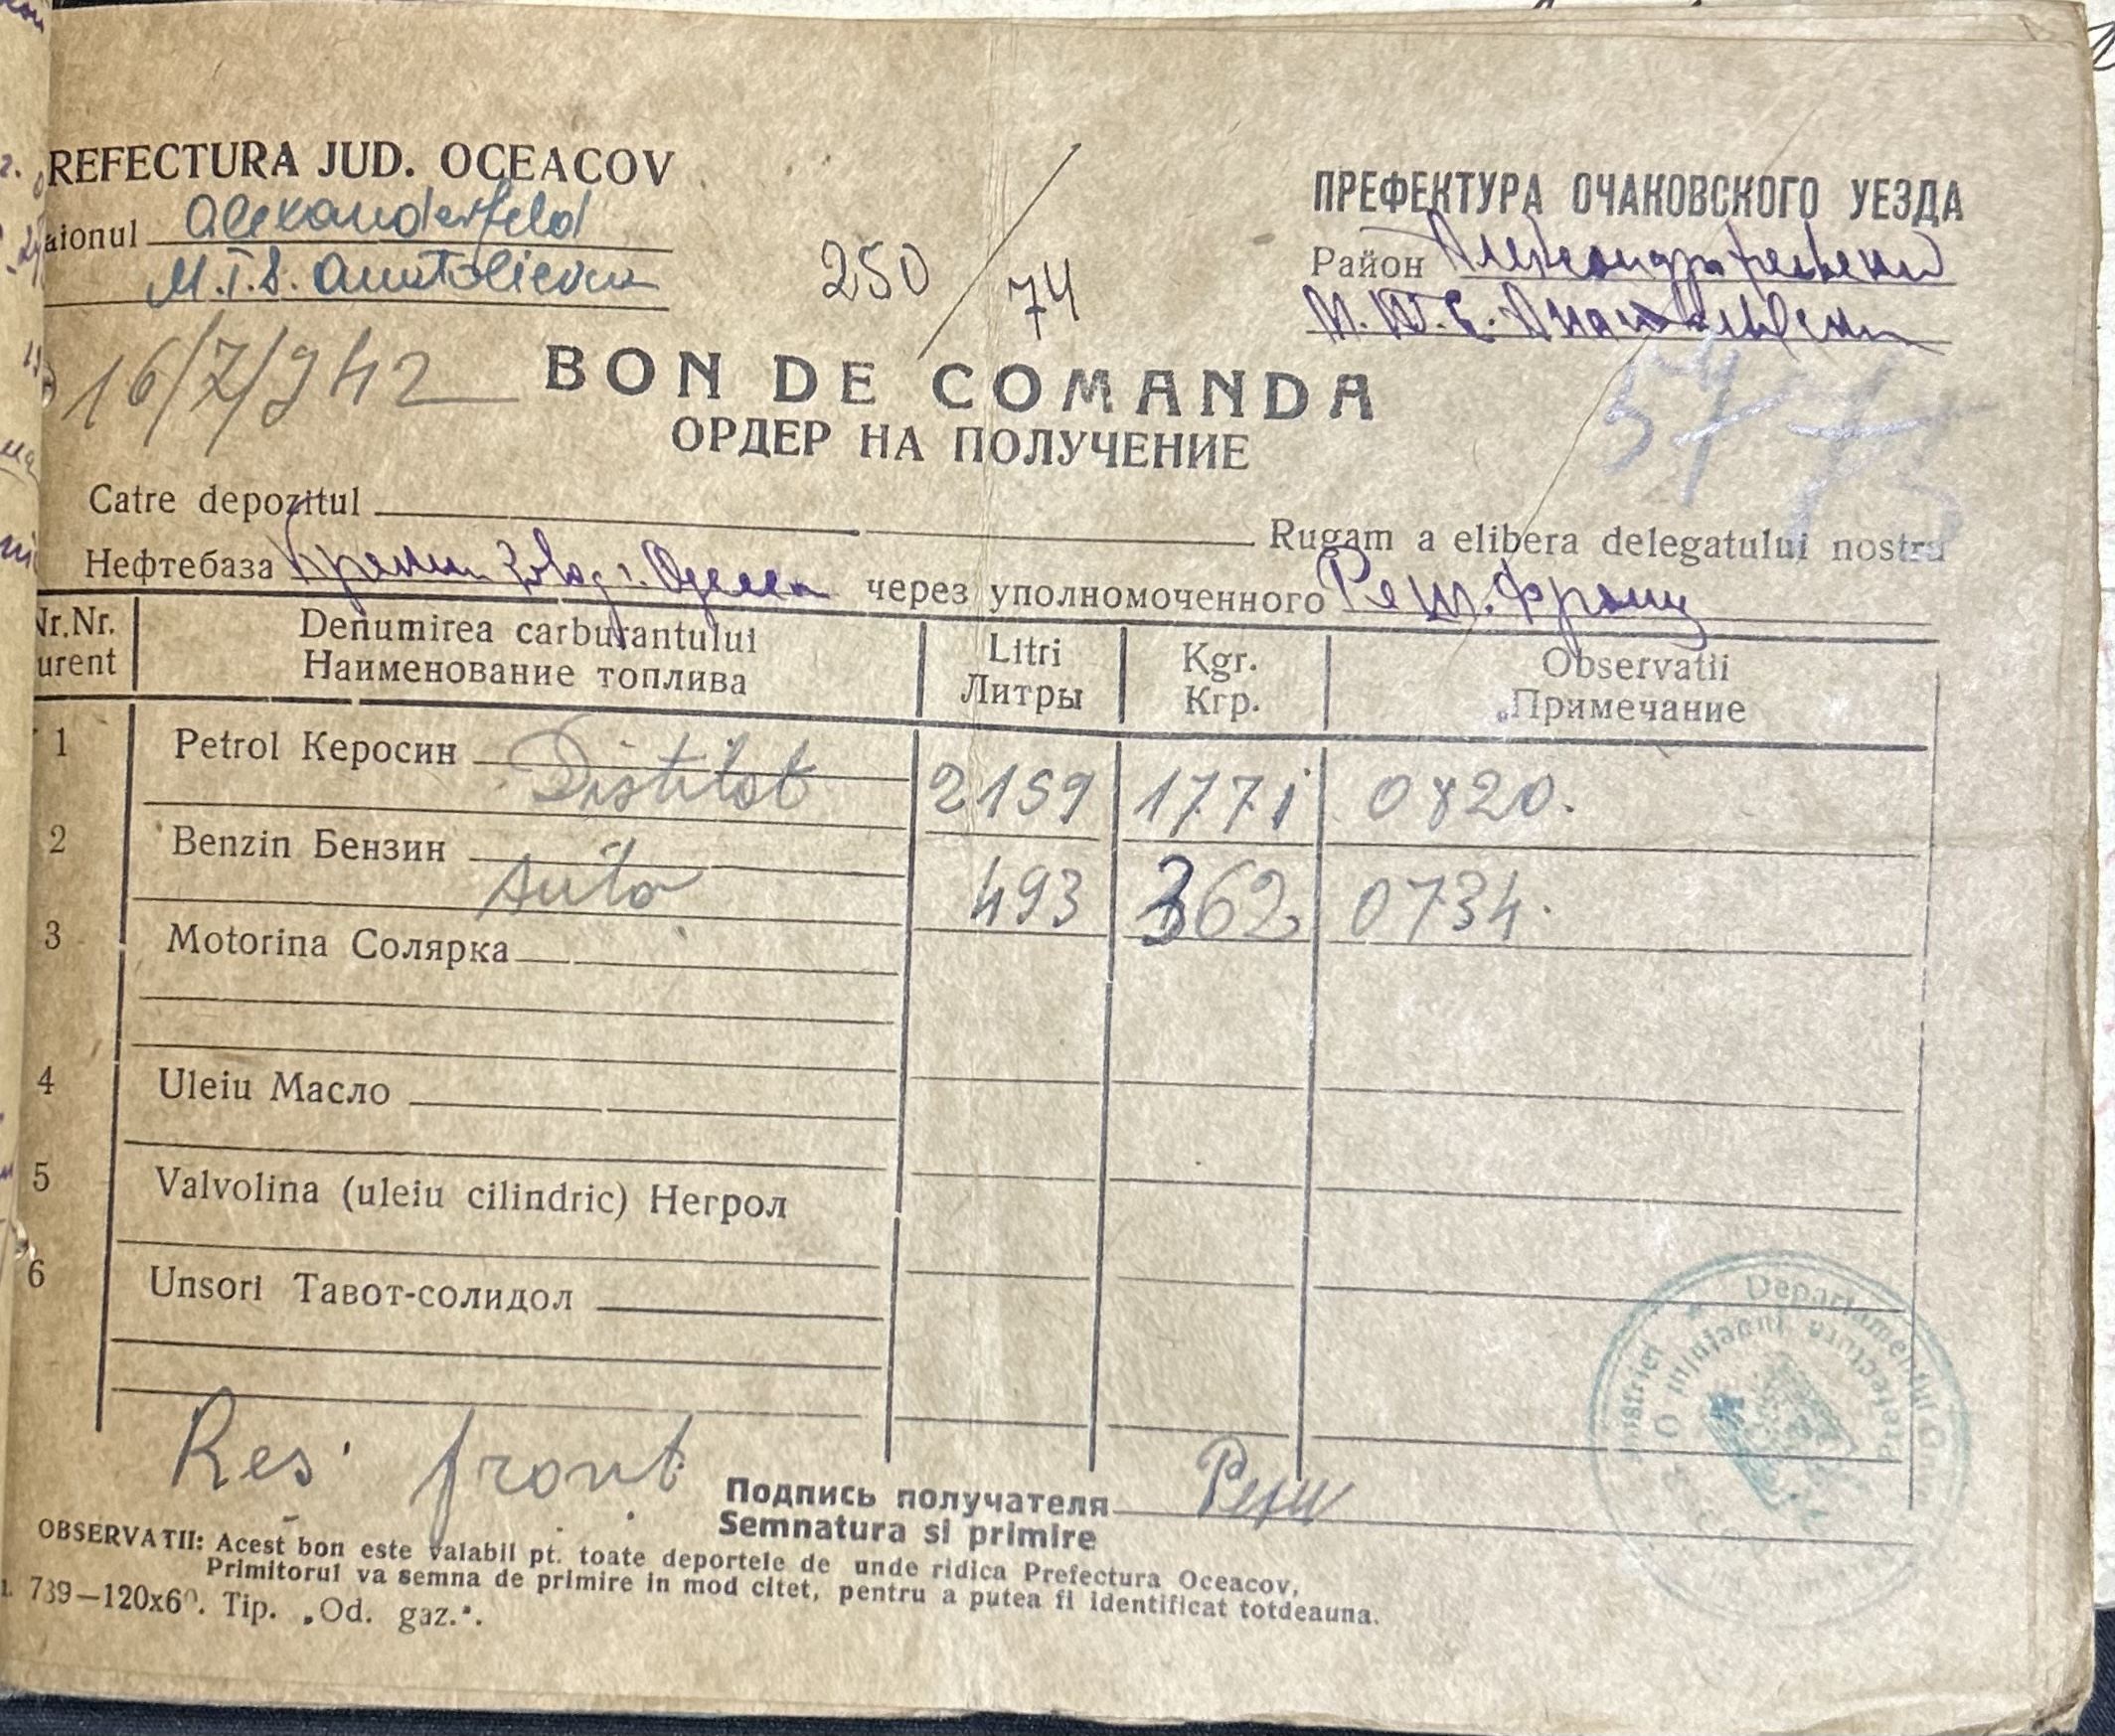 REFECTURA JUD. OCEACOV
aionul Alexanderfeld
M.T.S. Anatolievca
250/74
ПРЕФЕКТУРА ОЧАКОВСКОГО УЕЗДА
Район Александерфельский
М.Т.С.
16/7/942
57
BON DE COMANDA
ОРДЕР НА ПОЛУЧЕНИЕ
Catre depozitul Rugam a elibera delegatului nostru
Нефтебаза г. Одесса через уполномоченного Реш. Франц
Nr.Nr. Denumirea carburantului Litri Kgr. Observatii
urent Наименование топлива Литры Кгр. Примечание
1 Petrol Керосин Distilat 2159 1771 0820.
2 Benzin Бензин Auto 493 362 0734.
3 Motorina Солярка
4 Uleiu Масло
5 Valvolina (uleiu cilindric) Негрол
6 Unsori Тавот-солидол
Res front
Подпись получателя Реш
Semnatura si primire
OBSERVATII: Acest bon este valabil pt. toate deportele de unde ridica Prefectura Oceacov,
Primitorul va semna de primire in mod citet, pentru a putea fi identificat totdeauna.
1. 739—120x60. Tip. „Od. gaz.".
Departamentul
Prefectura Județului O